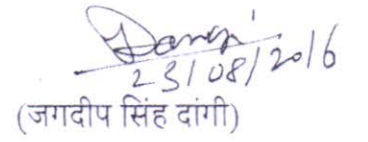 Dangi
23/08/2016
(जगदीप सिंह दांगी)